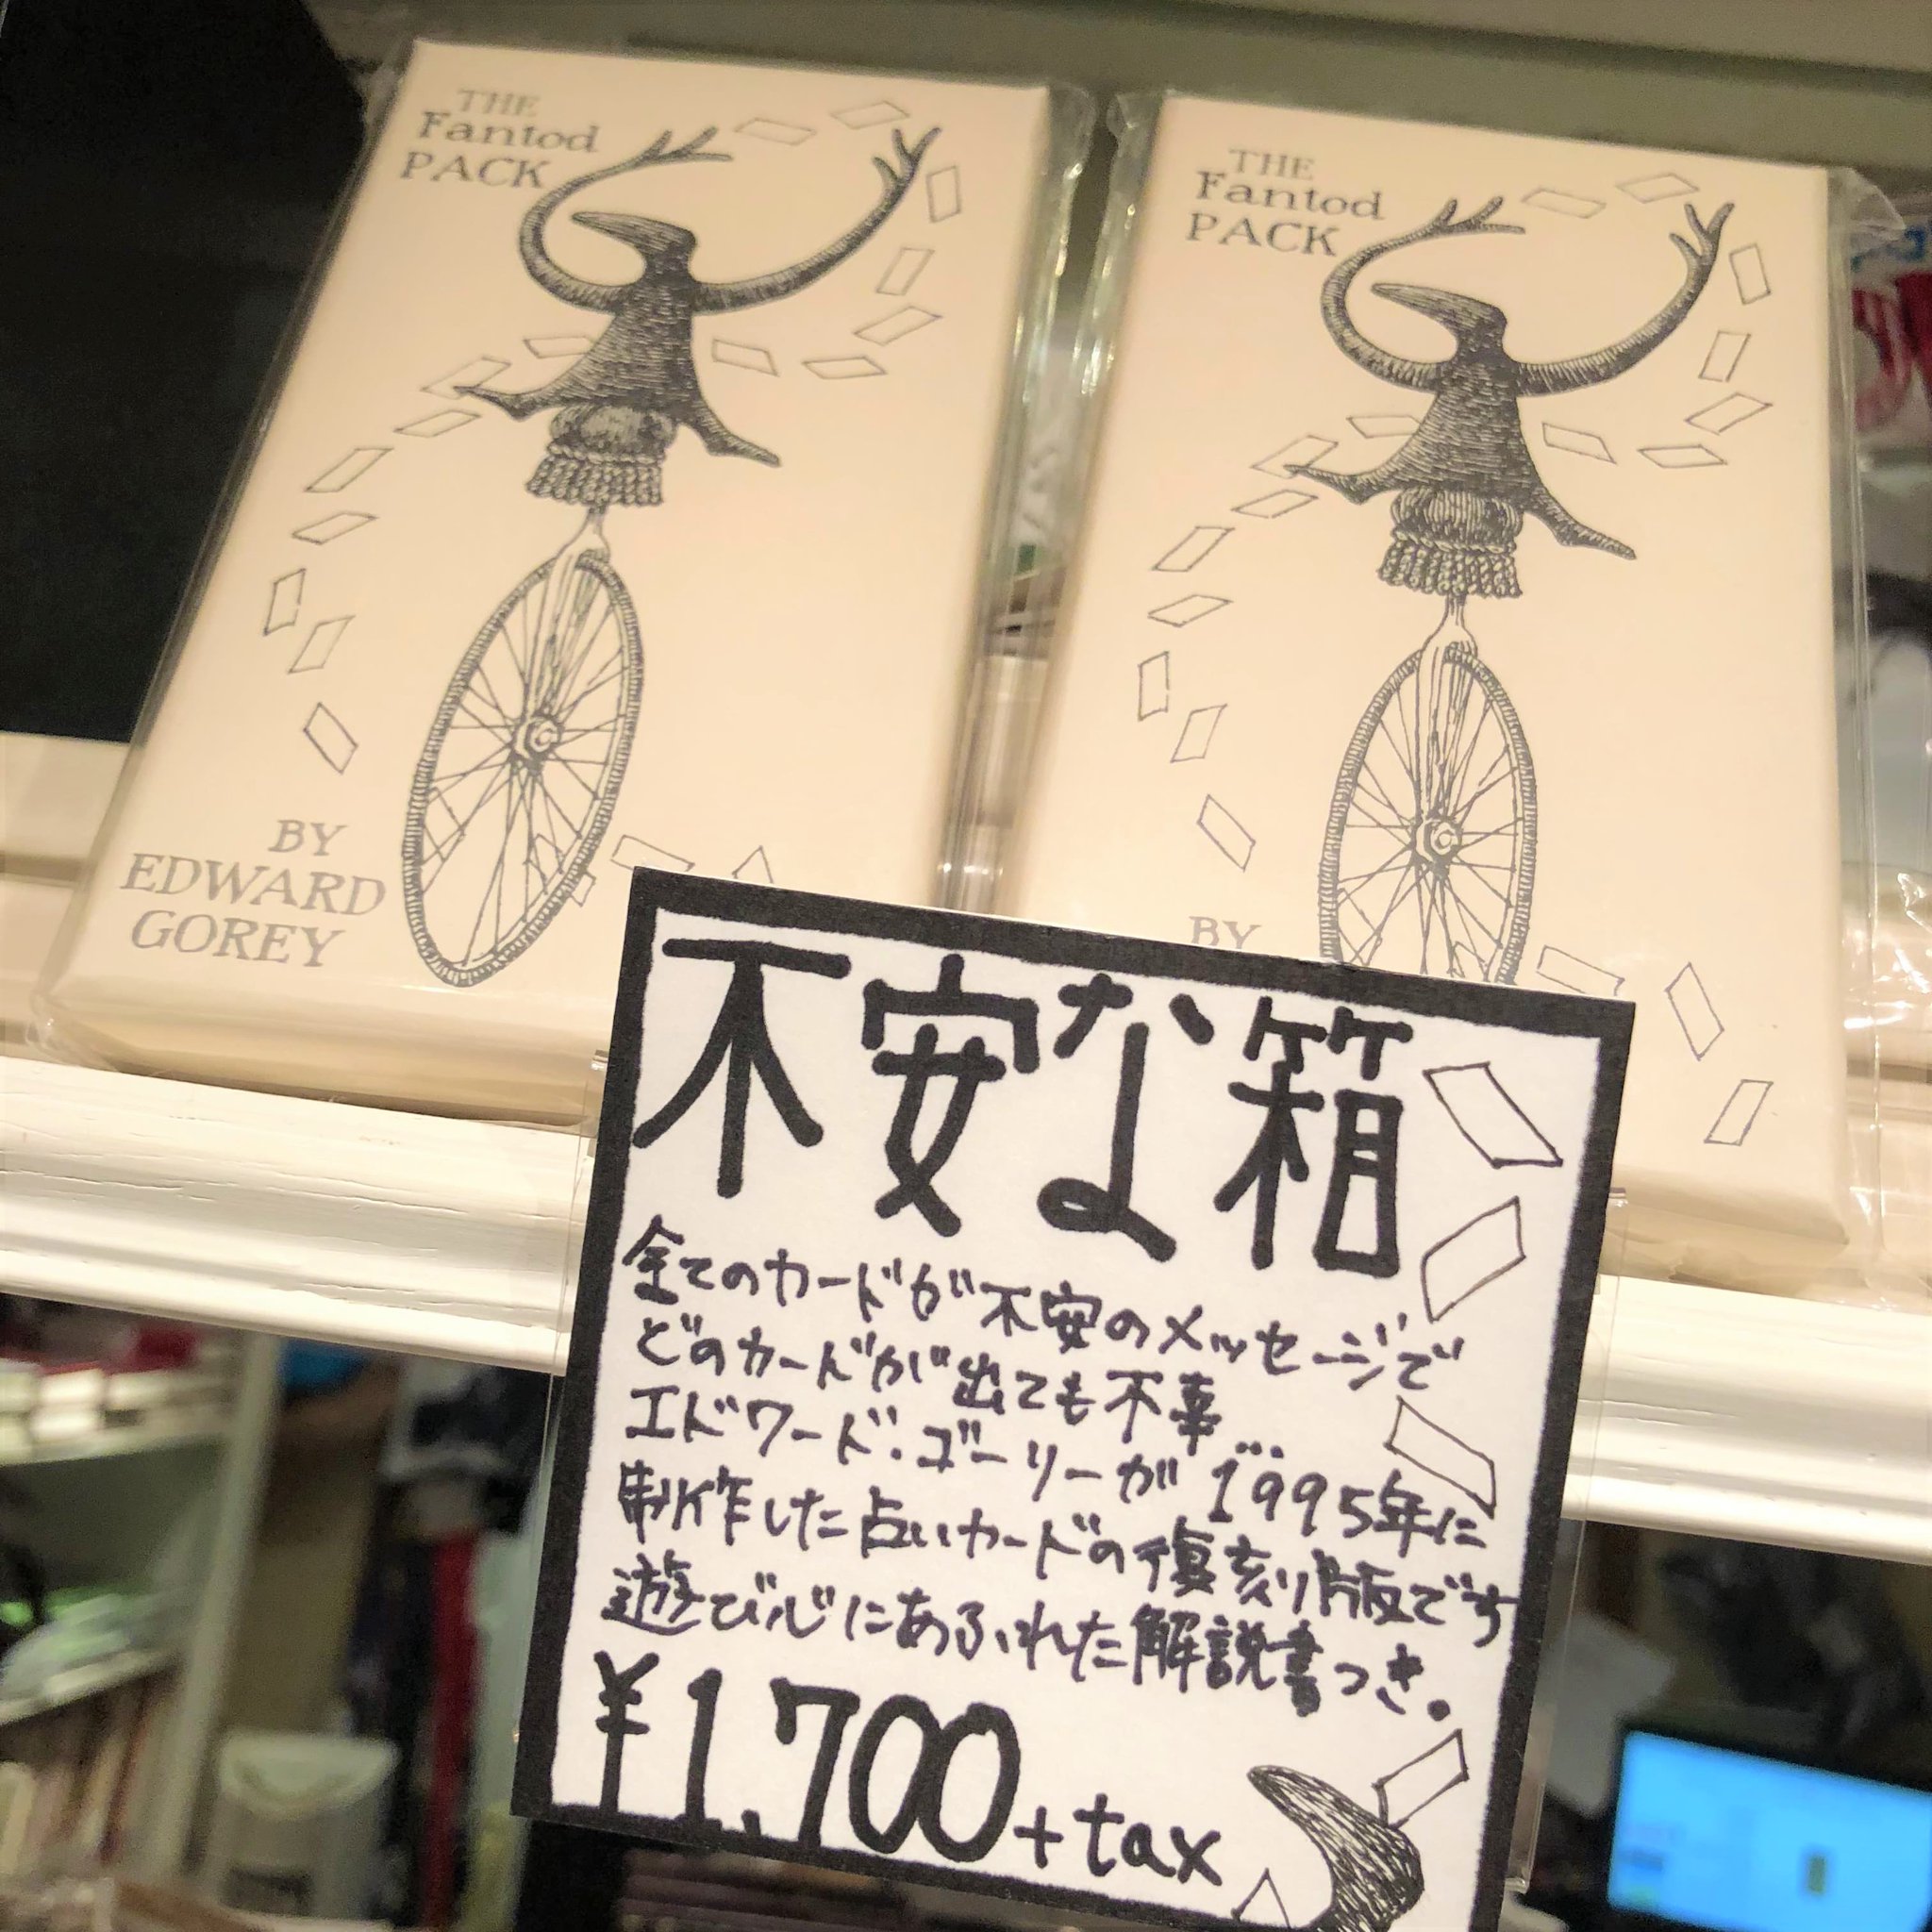 THE
Fantod
PACK
BY
EDWARD
GOREY
THE
Fantod
PACK
BY
不安な箱
全てのカードが不安のメッセージで
どのカードが出ても不幸…
エドワード・ゴーリーが1995年に
制作した占いカードの復刻版です
遊び心にあふれた解説書つき。
¥1,700+tax